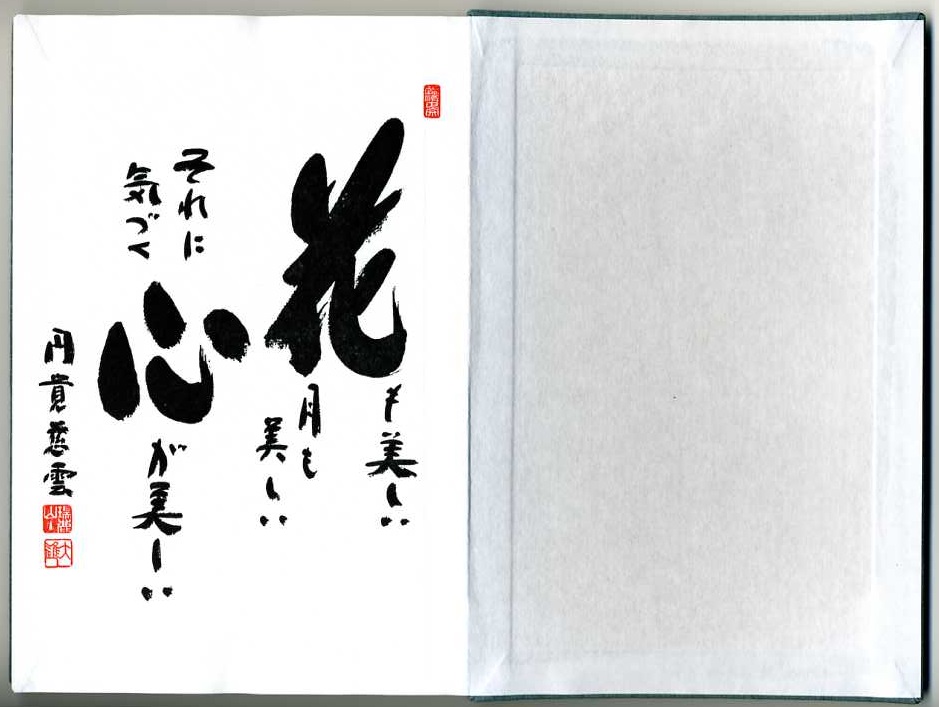 花も美しい
月も
美しい
それに
気づく
心が美しい
円貴慈雲